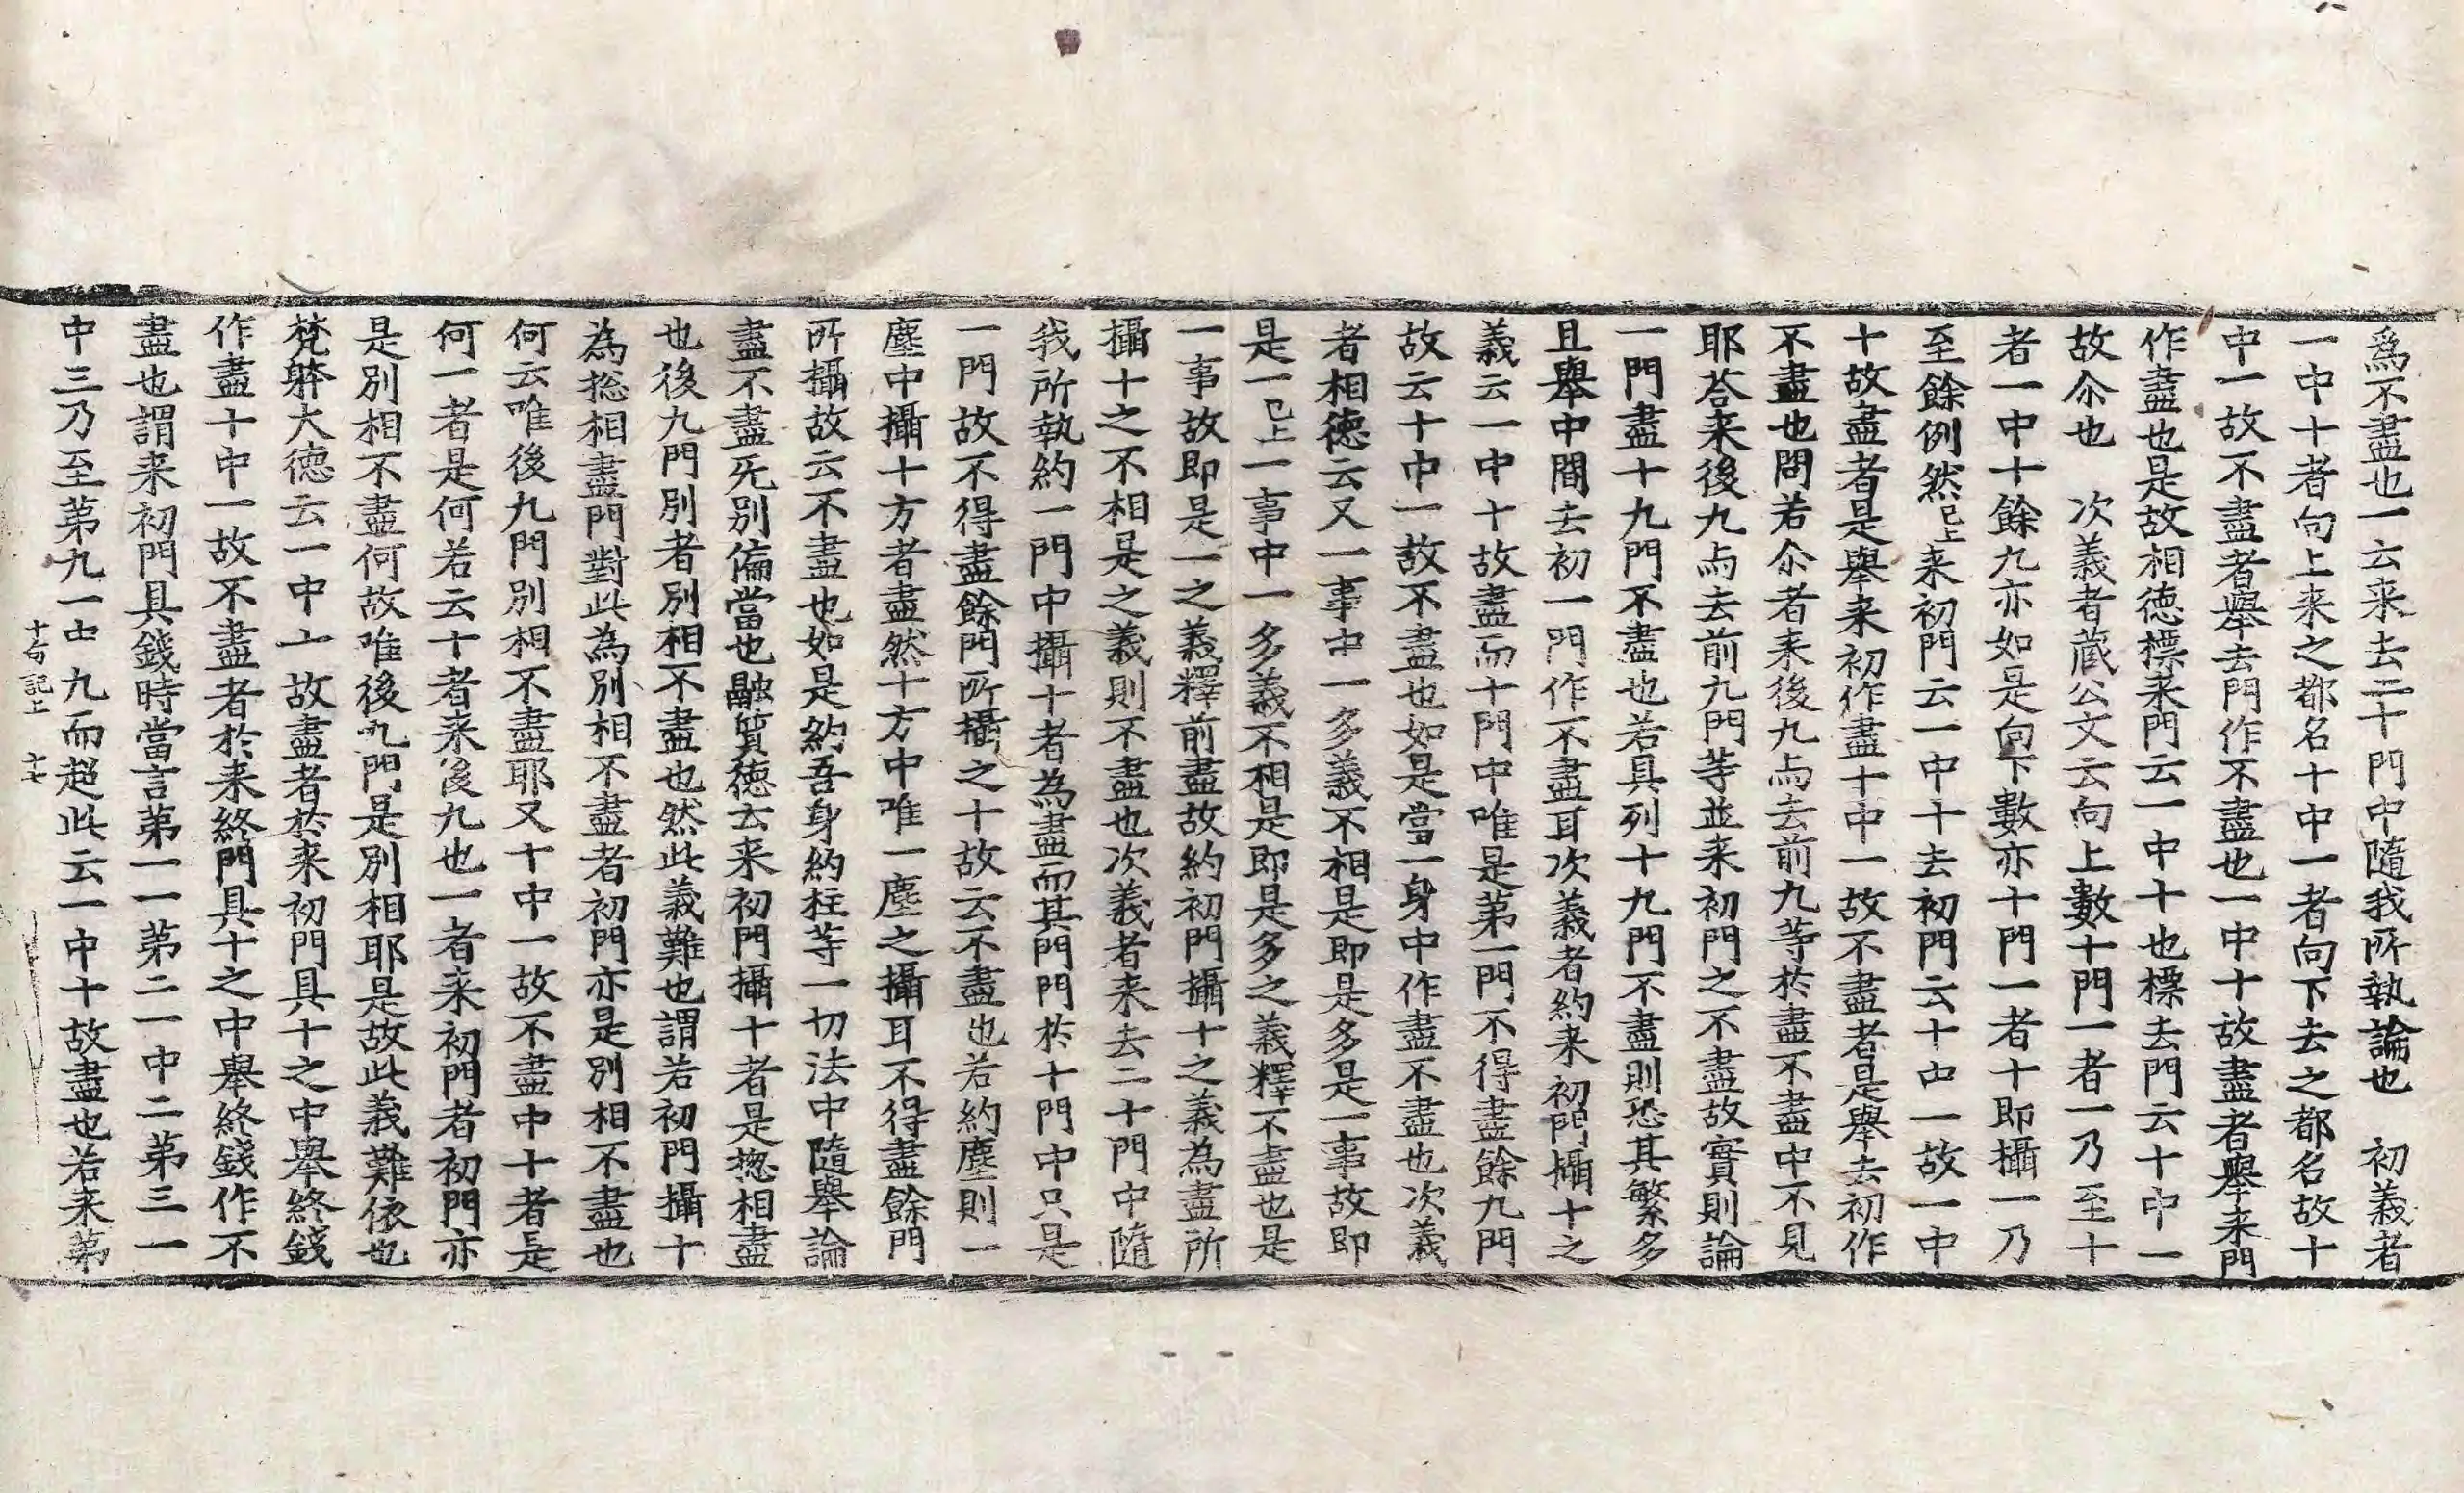 爲不盡也一云来去二十門中隨我所執論也　初義者
一中十者向上来之都名十中一者向下去之都名故十
中一故不盡者舉去門作不盡也一中十故盡者舉来門
作盡也是故相徳標来門云一中十也標去門云十中一
故尒也　次義者蔵公文云向上數十門一者一乃至十
者一中十餘九亦如是向下數亦十門一者十即攝一乃
至餘例然已上来初門云一中十去初門云十中一故一中
十故盡者是舉来初作盡十中一故不盡者是舉去初作
不盡也問若尒者来後九与去前九等於盡不盡中不見
耶荅来後九与去前九門等並来初門之不盡故實則論
一門盡十九門不盡也若具列十九門不盡則恐其繁多
且舉中間去初一門作不盡耳次義者約来初門攝十之
義云一中十故盡而十門中唯是第一門不得盡餘九門
故云十中一故不盡也如是當一身中作盡不盡也次義
者相徳云又一事中一多義不相是即是多是一事故即
是一已上一事中一多義不相是即是多之義釋不盡也是
一事故即是一之義釋前盡故約初門攝十之義為盡所
攝十之不相是之義則不盡也次義者来去二十門中隨
我所執約一門中攝十者為盡而其門門於十門中只是
一門故不得盡餘門所攝之十故云不盡也若約塵則一
塵中攝十方者盡然十方中唯一塵之攝耳不得盡餘門
所攝故云不盡也如是約吾身約柱等一切法中隨舉論
盡不盡旡别偏當也融質徳云来初門攝十者是揔相盡
也後九門別者別相不盡也然此義難也謂若初門攝十
為揔相盡門對此為別相不盡者初門亦是別相不盡也
何云唯後九門別相不盡耶又十中一故不盡中十者是
何一者是何若云十者来後九也一者来初門者初門亦
是別相不盡何故唯後九門是別相耶是故此義難依也
梵躰大徳云一中十故盡者於来初門具十之中舉終錢
作盡十中一故不盡者於来終門具十之中舉終錢作不
盡也謂来初門具錢時當言第一一第二一中二第三一
中三乃至第九一中九而超此云一中十故盡也若来第
十句記上　十七